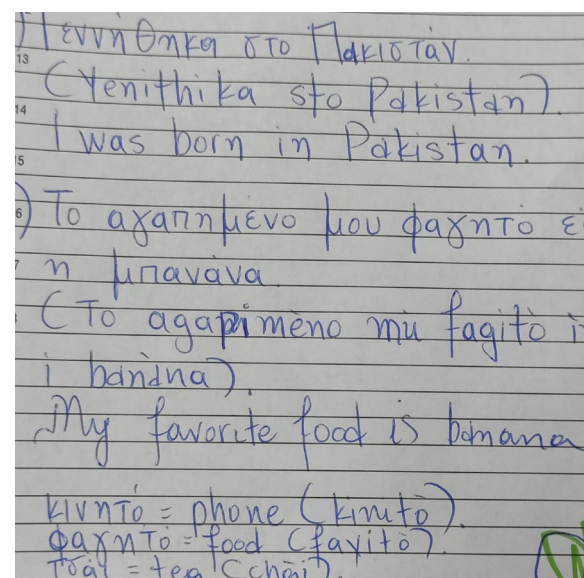 ) Γεννήθηκα στο Πακιστάν.
13
(Yenithika sto Pakistan).
14
I was born in Pakistan.
15
6) Το αγαπημένο μου φαγητό εί
η μπανάνα
(To agapimèno mu fagitò i
i banàna).
My favorite food is banana
κινητό = phone (kinitò).
φαγητό = food (fayitò).
τσάι = tea (chài).